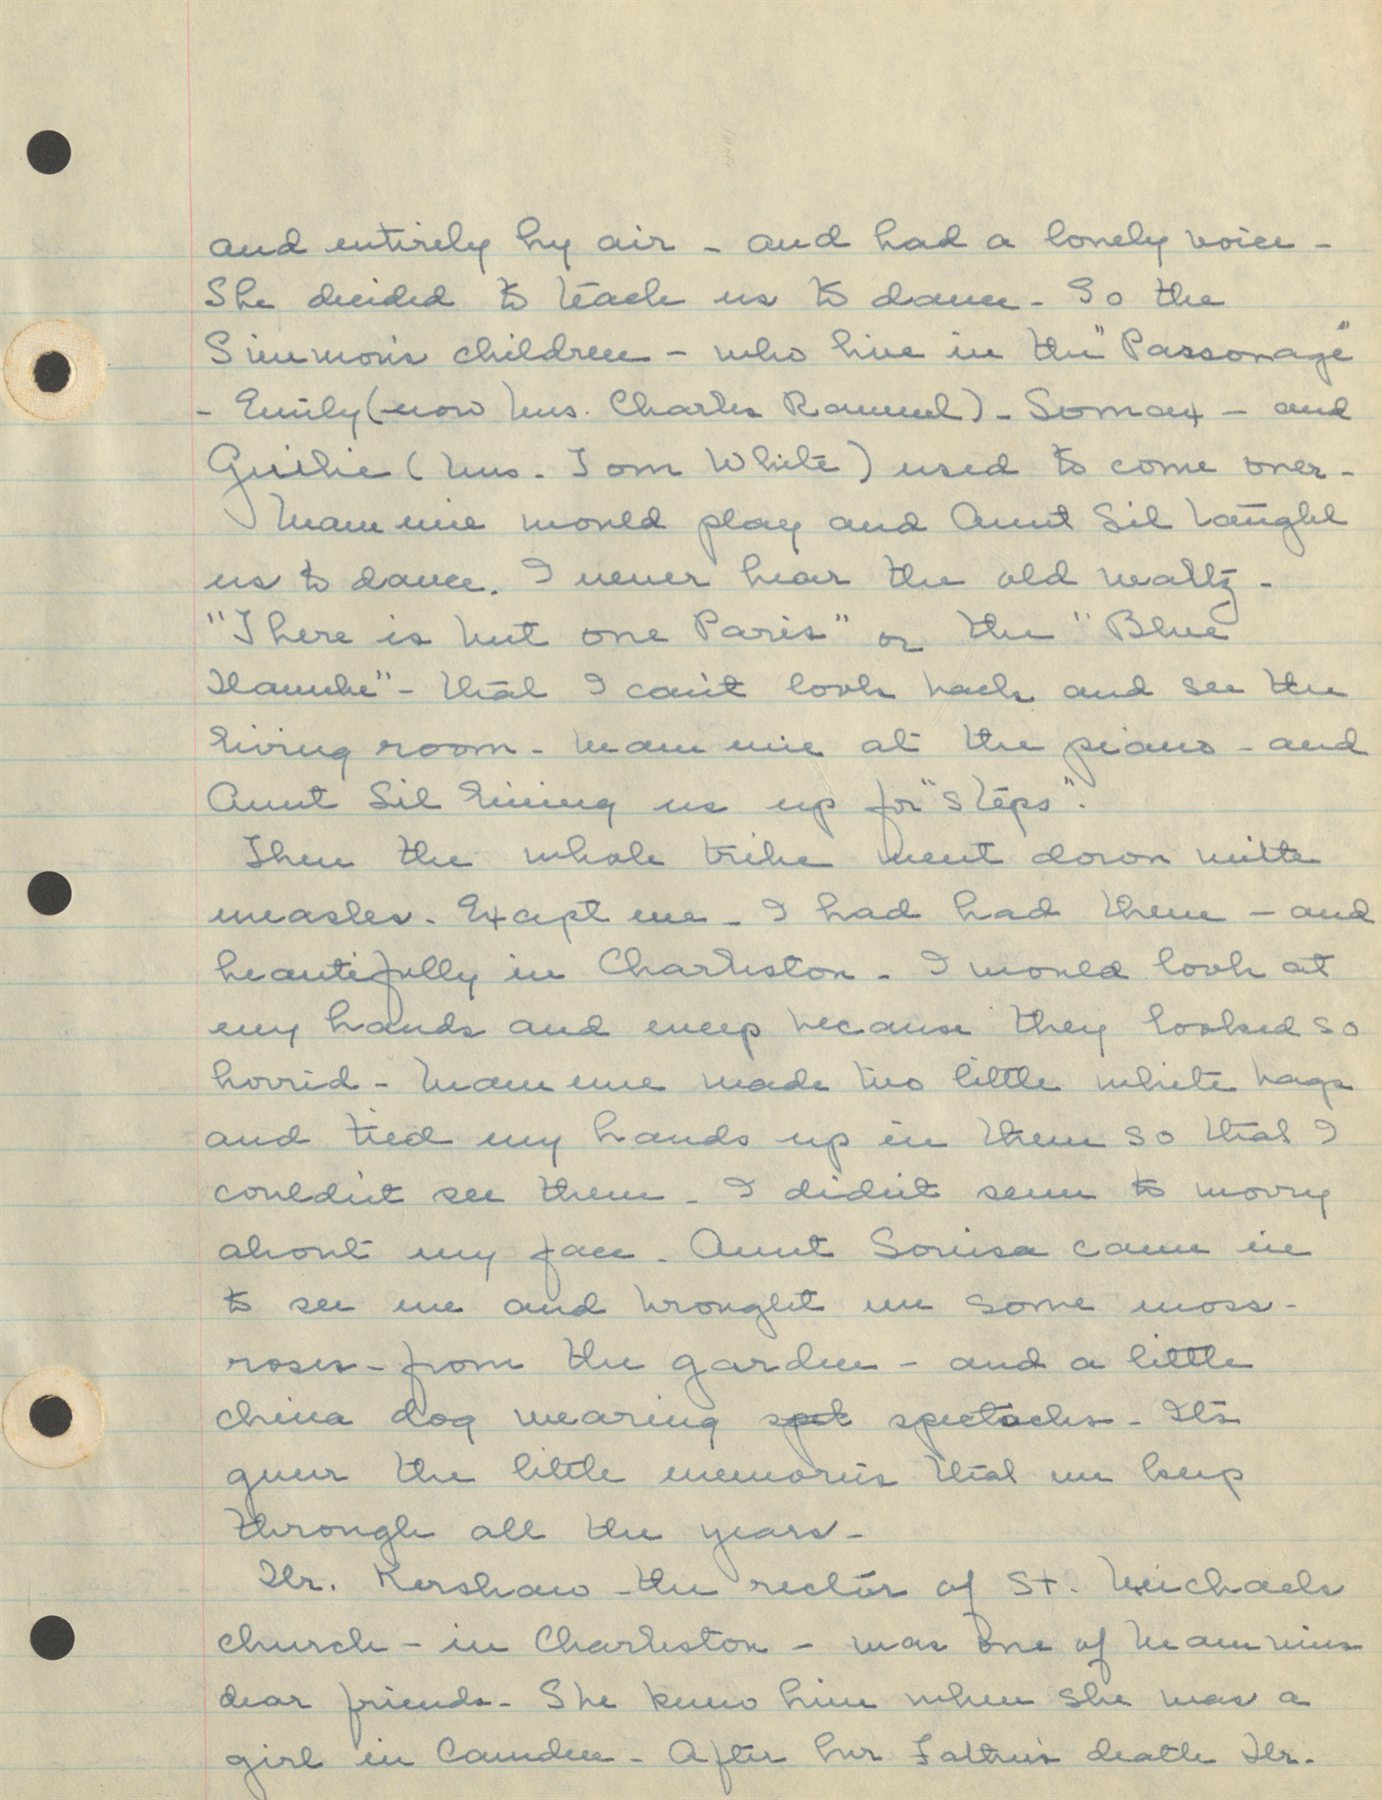 and entirely by air - and had a lovely voice -
She decided to teach us to dance - So the
Simmons children - who live in the "Parsonage"
- Emily (now Mrs. Charles Ravenel) - Lomax - and
(Mrs. Tom White) used to come over -
Mammie would play and Aunt Sil taught
us to dance. I never hear the old waltz -
"There is but one Paris" or the "Blue
Danube" - that I can't look back and see the
living room - Mammie at the piano - and
Aunt Sil lining us up for "steps".
Then the whole tribe went down with
measles. Except me - I had had them - and
beautifully in Charleston - I would look at
my hands and weep because they looked so
horrid - Mammie made two little white bags
and tied my hands up in them so that I
couldn't see them - I didn't seem to worry
about my face - Aunt Louisa came in
to see me and brought me some moss-
roses - from the garden - and a little
china dog wearing spectacles - It's
queer the little memories that we keep
through all the years -
Dr. Kershaw - the rector of St. Michaels
church - in Charleston - was one of Mammies
dear friends - She knew him when she was a
girl in Camden - After her Father's death Dr.